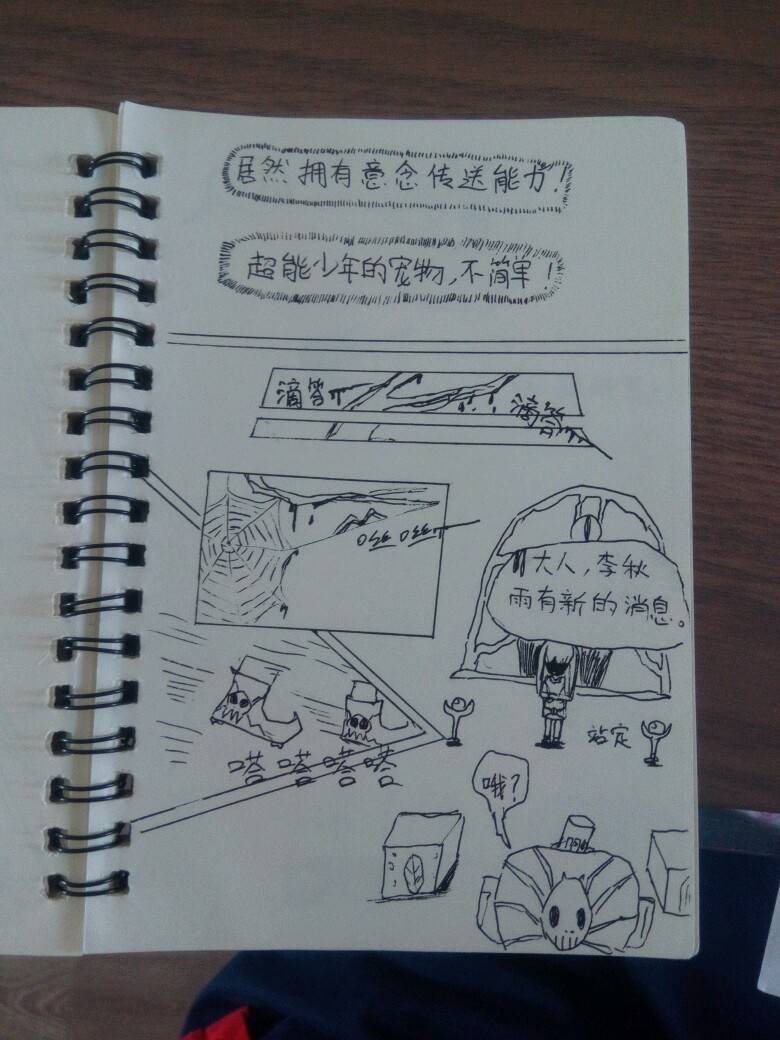 居然拥有意念传送能力！
超能少年的宠物，不简单！
滴答
滴答
咝咝
大人，李秋
雨有新的消息。
嗒嗒嗒嗒
站定
哦？